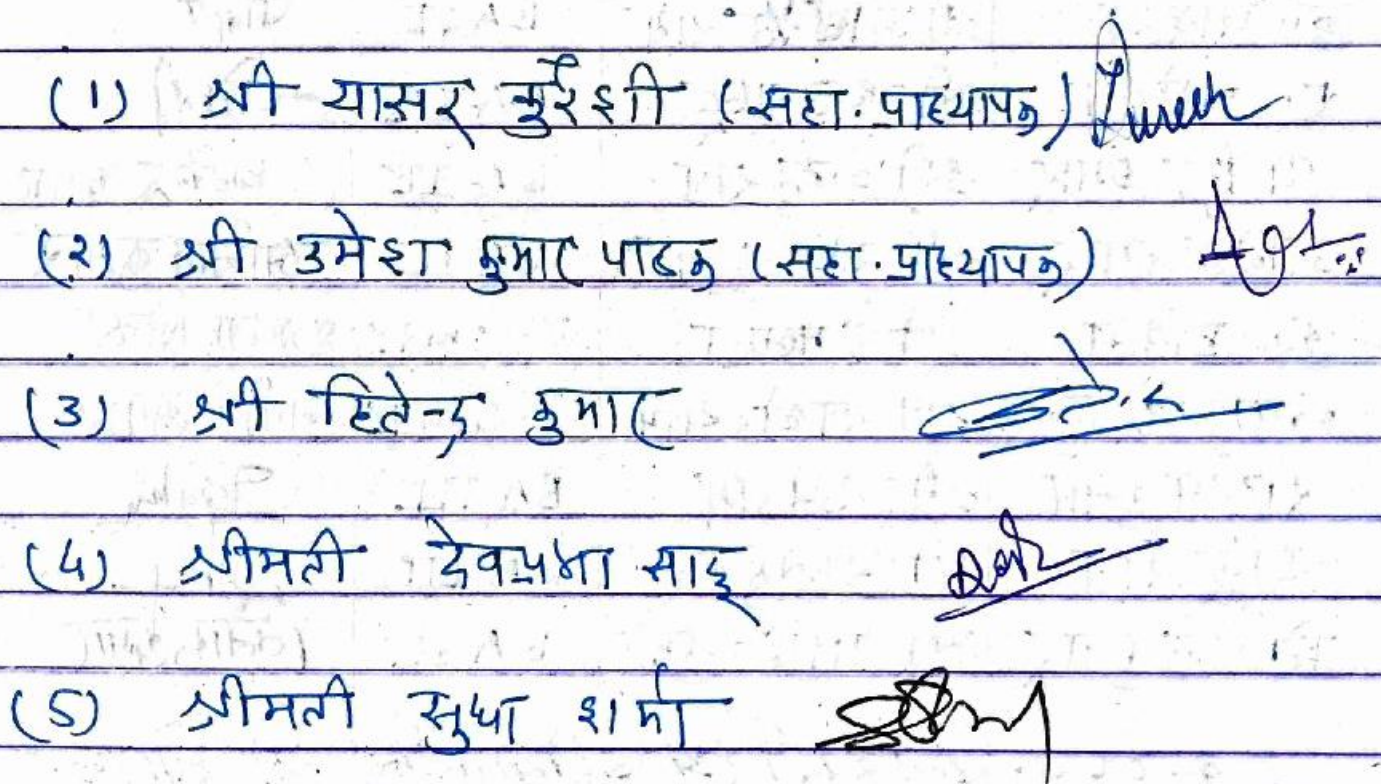 (1) श्री यासर कुरैशी (सहा. प्राध्यापक)
(२) श्री उमेश कुमार पाठक (सहा. प्राध्यापक)
(3) श्री हितेन्द्र कुमार
(4) श्रीमती देवप्रभा साहू
(5) श्रीमती सुधा शर्मा